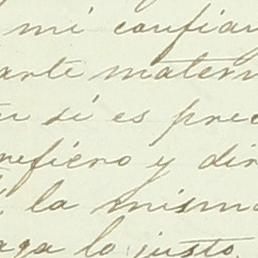 mi confian
arte matern
si es prec
refiero y dir
la misma
aga lo justo.